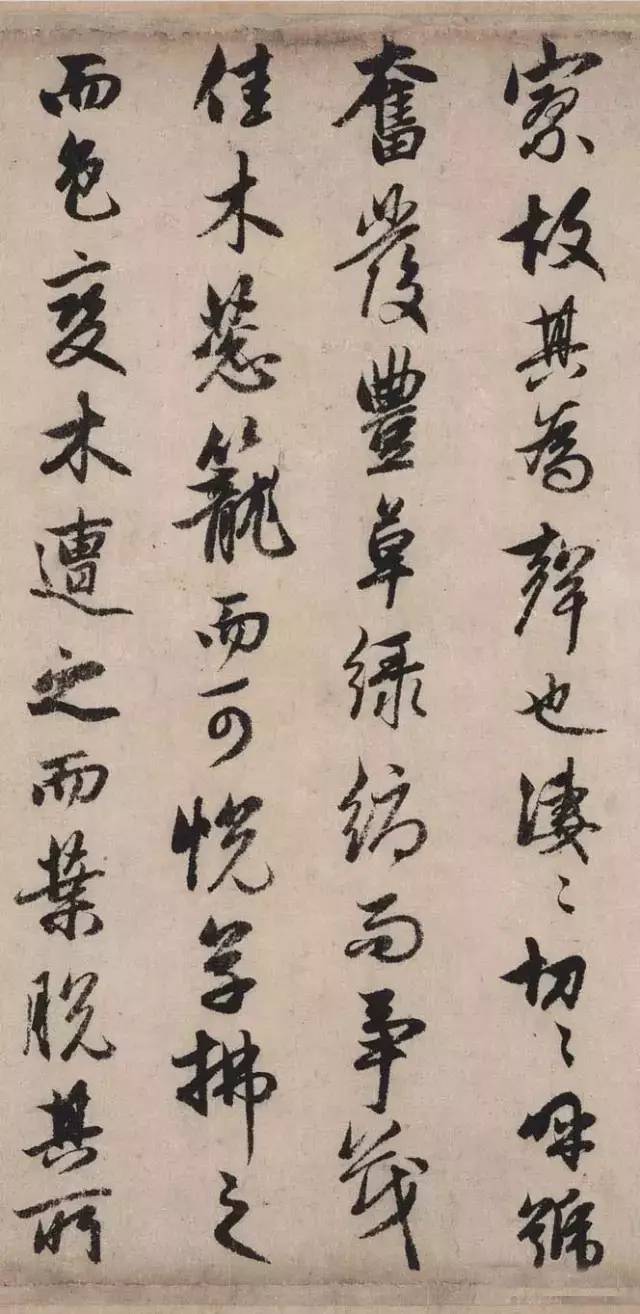 寥故其為聲也淒〻切〻呼號
奮發豐草綠縟而爭茂
佳木葱籠而可悅草拂之
而色變木遭之而葉脫其所